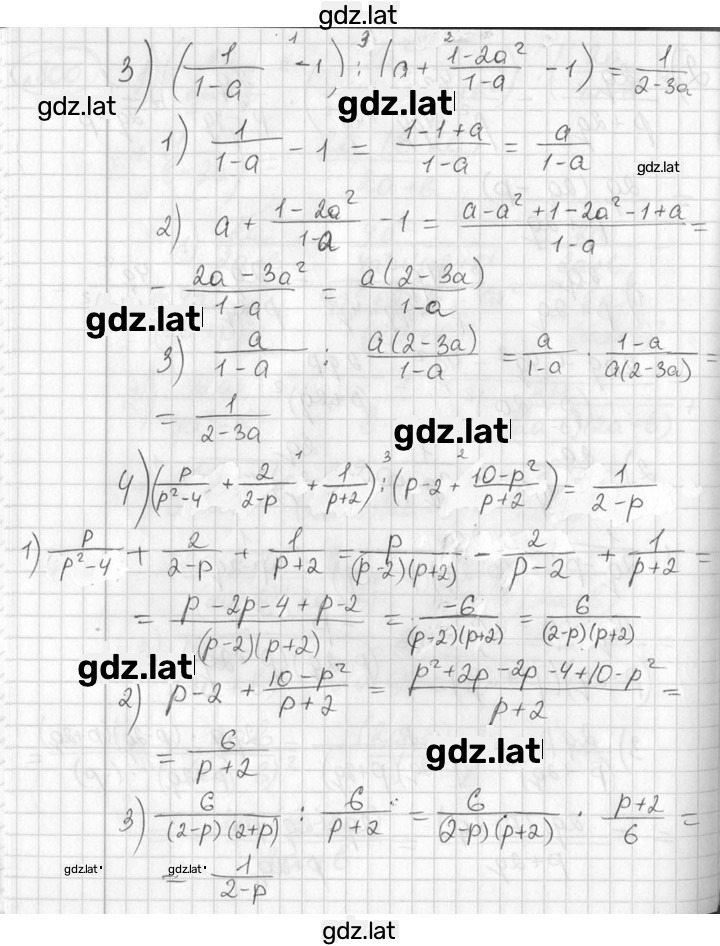 gdz.lat
3) (1/(1-a) - 1) : (a + (1-2a²)/(1-a) - 1) = 1/(2-3a)
gdz.lat gdz.lat
1) 1/(1-a) - 1 = (1-1+a)/(1-a) = a/(1-a)
gdz.lat
2) a + (1-2a²)/(1-a) - 1 = (a-a²+1-2a²-1+a)/(1-a) =
- (2a-3a²)/(1-a) = a(2-3a)/(1-a)
gdz.lat
3) a/(1-a) : a(2-3a)/(1-a) = a/(1-a) · (1-a)/(a(2-3a)) =
= 1/(2-3a)
gdz.lat
4) (p/(p²-4) + 2/(2-p) + 1/(p+2)) : (p-2 + (10-p²)/(p+2)) = 1/(2-p)
1) p/(p²-4) + 2/(2-p) + 1/(p+2) = p/((p-2)(p+2)) - 2/(p-2) + 1/(p+2) =
= (p-2p-4+p-2)/((p-2)(p+2)) = -6/((p-2)(p+2)) = 6/((2-p)(p+2))
gdz.lat
2) p-2 + (10-p²)/(p+2) = (p²+2p-2p-4+10-p²)/(p+2) =
= 6/(p+2)
gdz.lat
3) 6/((2-p)(2+p)) : 6/(p+2) = 6/((2-p)(p+2)) · (p+2)/6 =
gdz.lat gdz.lat
= 1/(2-p)
gdz.lat